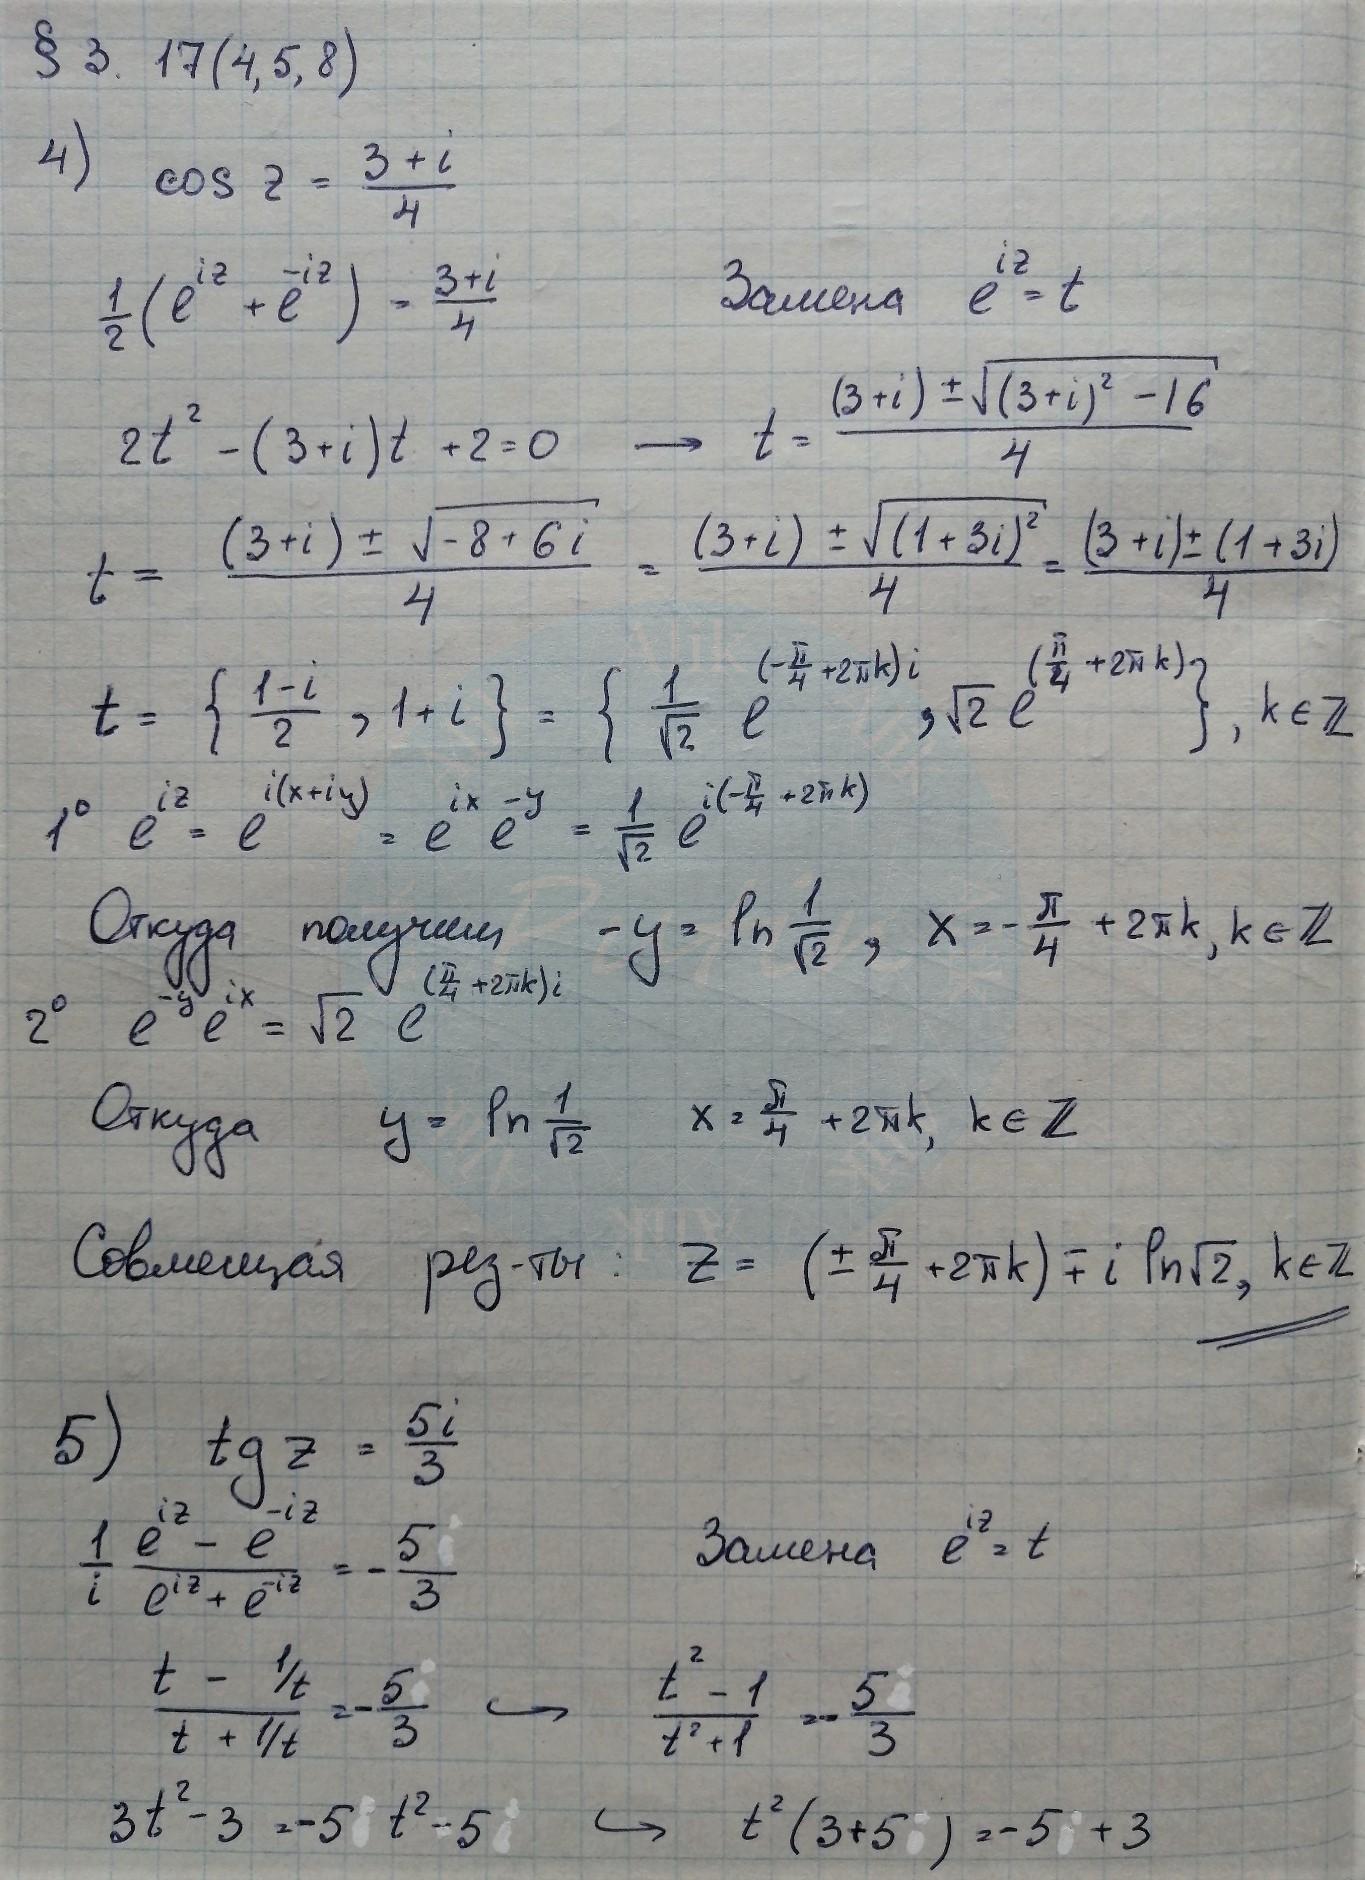 § 3. 17(4,5,8)
4) cos z = (3+i)/4
1/2 (e^{iz} + e^{-iz}) = (3+i)/4    Замена e^{iz} = t
2t² - (3+i)t + 2 = 0 → t = ((3+i) ± √((3+i)² - 16))/4
t = ((3+i) ± √(-8+6i))/4 = ((3+i) ± √((1+3i)²))/4 = ((3+i) ± (1+3i))/4
t = { (1-i)/2 , 1+i } = { 1/√2 e^{(-π/4 + 2πk)i} , √2 e^{(π/4 + 2πk)} } , k ∈ ℤ
1° e^{iz} = e^{i(x+iy)} = e^{ix} e^{-y} = 1/√2 e^{i(-π/4 + 2πk)}
Откуда получим -y = ln 1/√2 , x = -π/4 + 2πk, k ∈ ℤ
2° e^{-y} e^{ix} = √2 e^{(π/4 + 2πk)i}
Откуда y = ln 1/√2 x = π/4 + 2πk, k ∈ ℤ
Совмещая рез-ты: z = (± π/4 + 2πk) ∓ i ln √2, k ∈ ℤ
5) tg z = 5i/3
1/i (e^{iz} - e^{-iz})/(e^{iz} + e^{-iz}) = -5/3    Замена e^{iz} = t
(t - 1/t)/(t + 1/t) = -5/3 ↪ (t² - 1)/(t² + 1) = -5/3
3t² - 3 = -5 t² - 5 ↪ t²(3+5) = -5 + 3